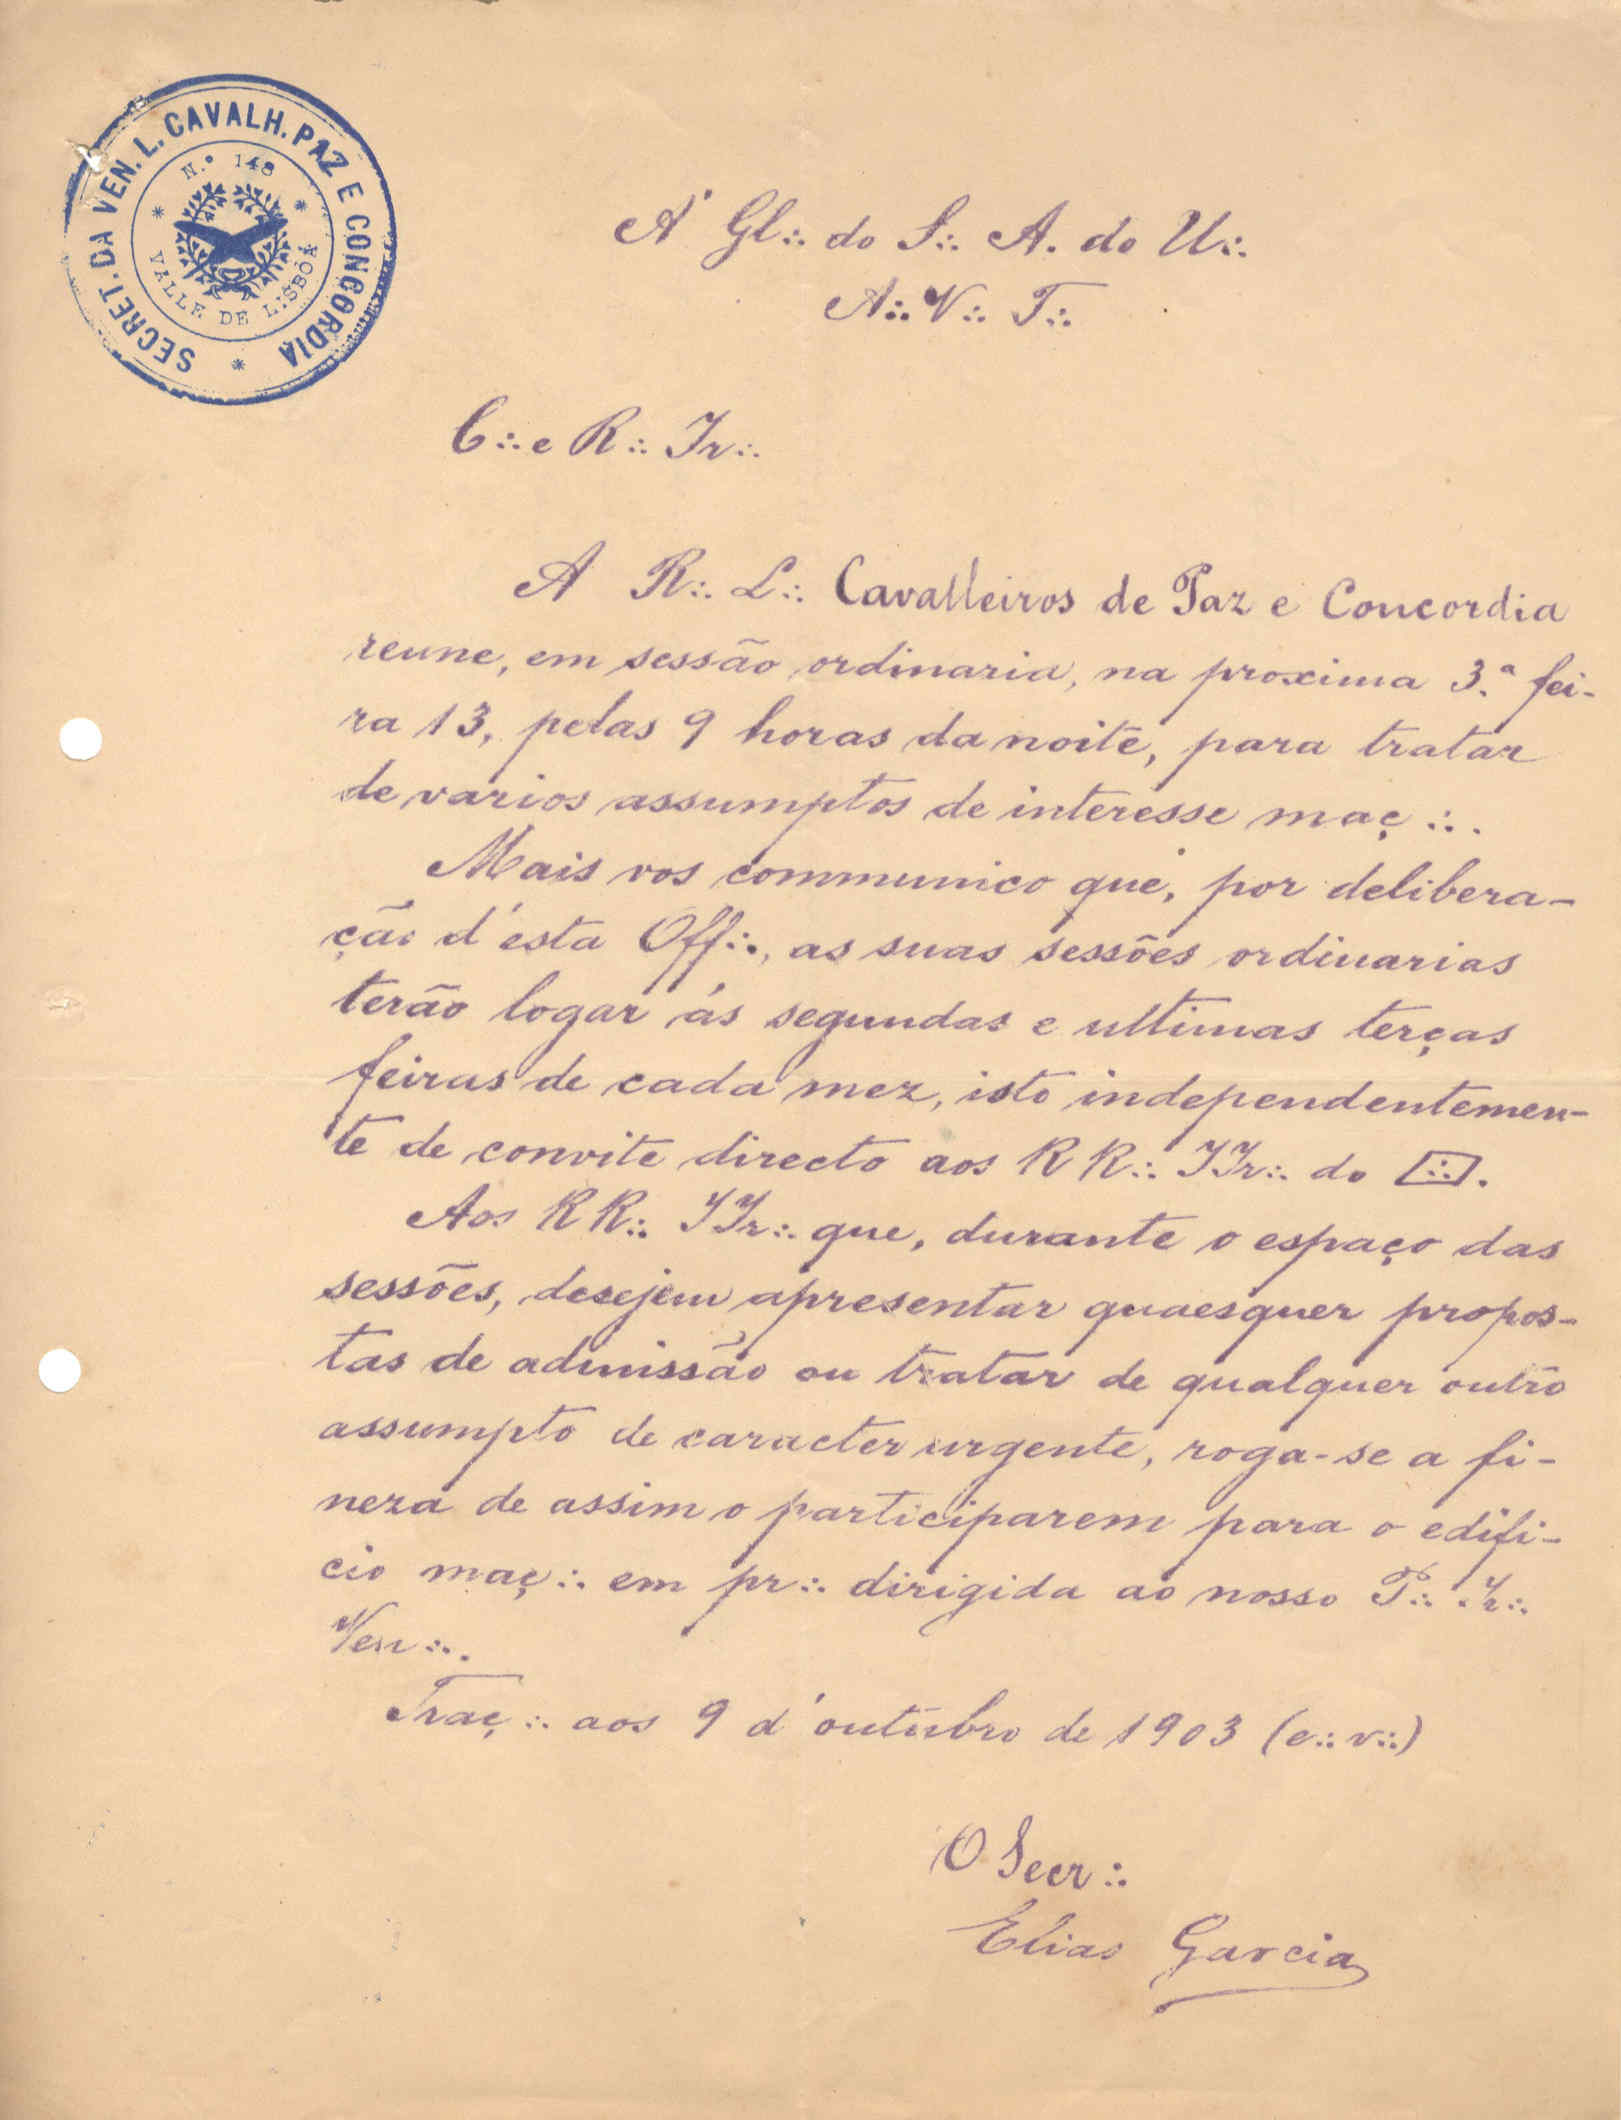 SECRET. DA VEN. L. CAVALH. PAZ E CONCORDIA
N.º 148
VALLE DE LISBÔA
A' Gl∴ do S∴ A. do U∴
A∴ V∴ T∴
C∴ e R∴ Ir∴
A R∴ L∴ Cavalleiros de Paz e Concordia
reune, em sessão ordinaria, na proxima 3.ª fei-
ra 13, pelas 9 horas da noite, para tratar
de varios assumptos de interesse maç∴.
Mais vos communico que, por delibera-
ção d'esta Off∴, as suas sessões ordinarias
terão logar ás segundas e ultimas terças
feiras de cada mez, isto independentemen-
te de convite directo aos RR∴ IIr∴ do [∴].
Aos RR∴ IIr∴ que, durante o espaço das
sessões, desejem apresentar quaesquer propos-
tas de admissão ou tratar de qualquer outro
assumpto de caracter urgente, roga-se a fi-
neza de assim o participarem para o edifi-
cio maç∴ em pr∴ dirigida ao nosso P∴ Ir∴
Ven∴.
Traç∴ aos 9 d'outubro de 1903 (e∴ v∴)
O Secr∴
Elias Garcia